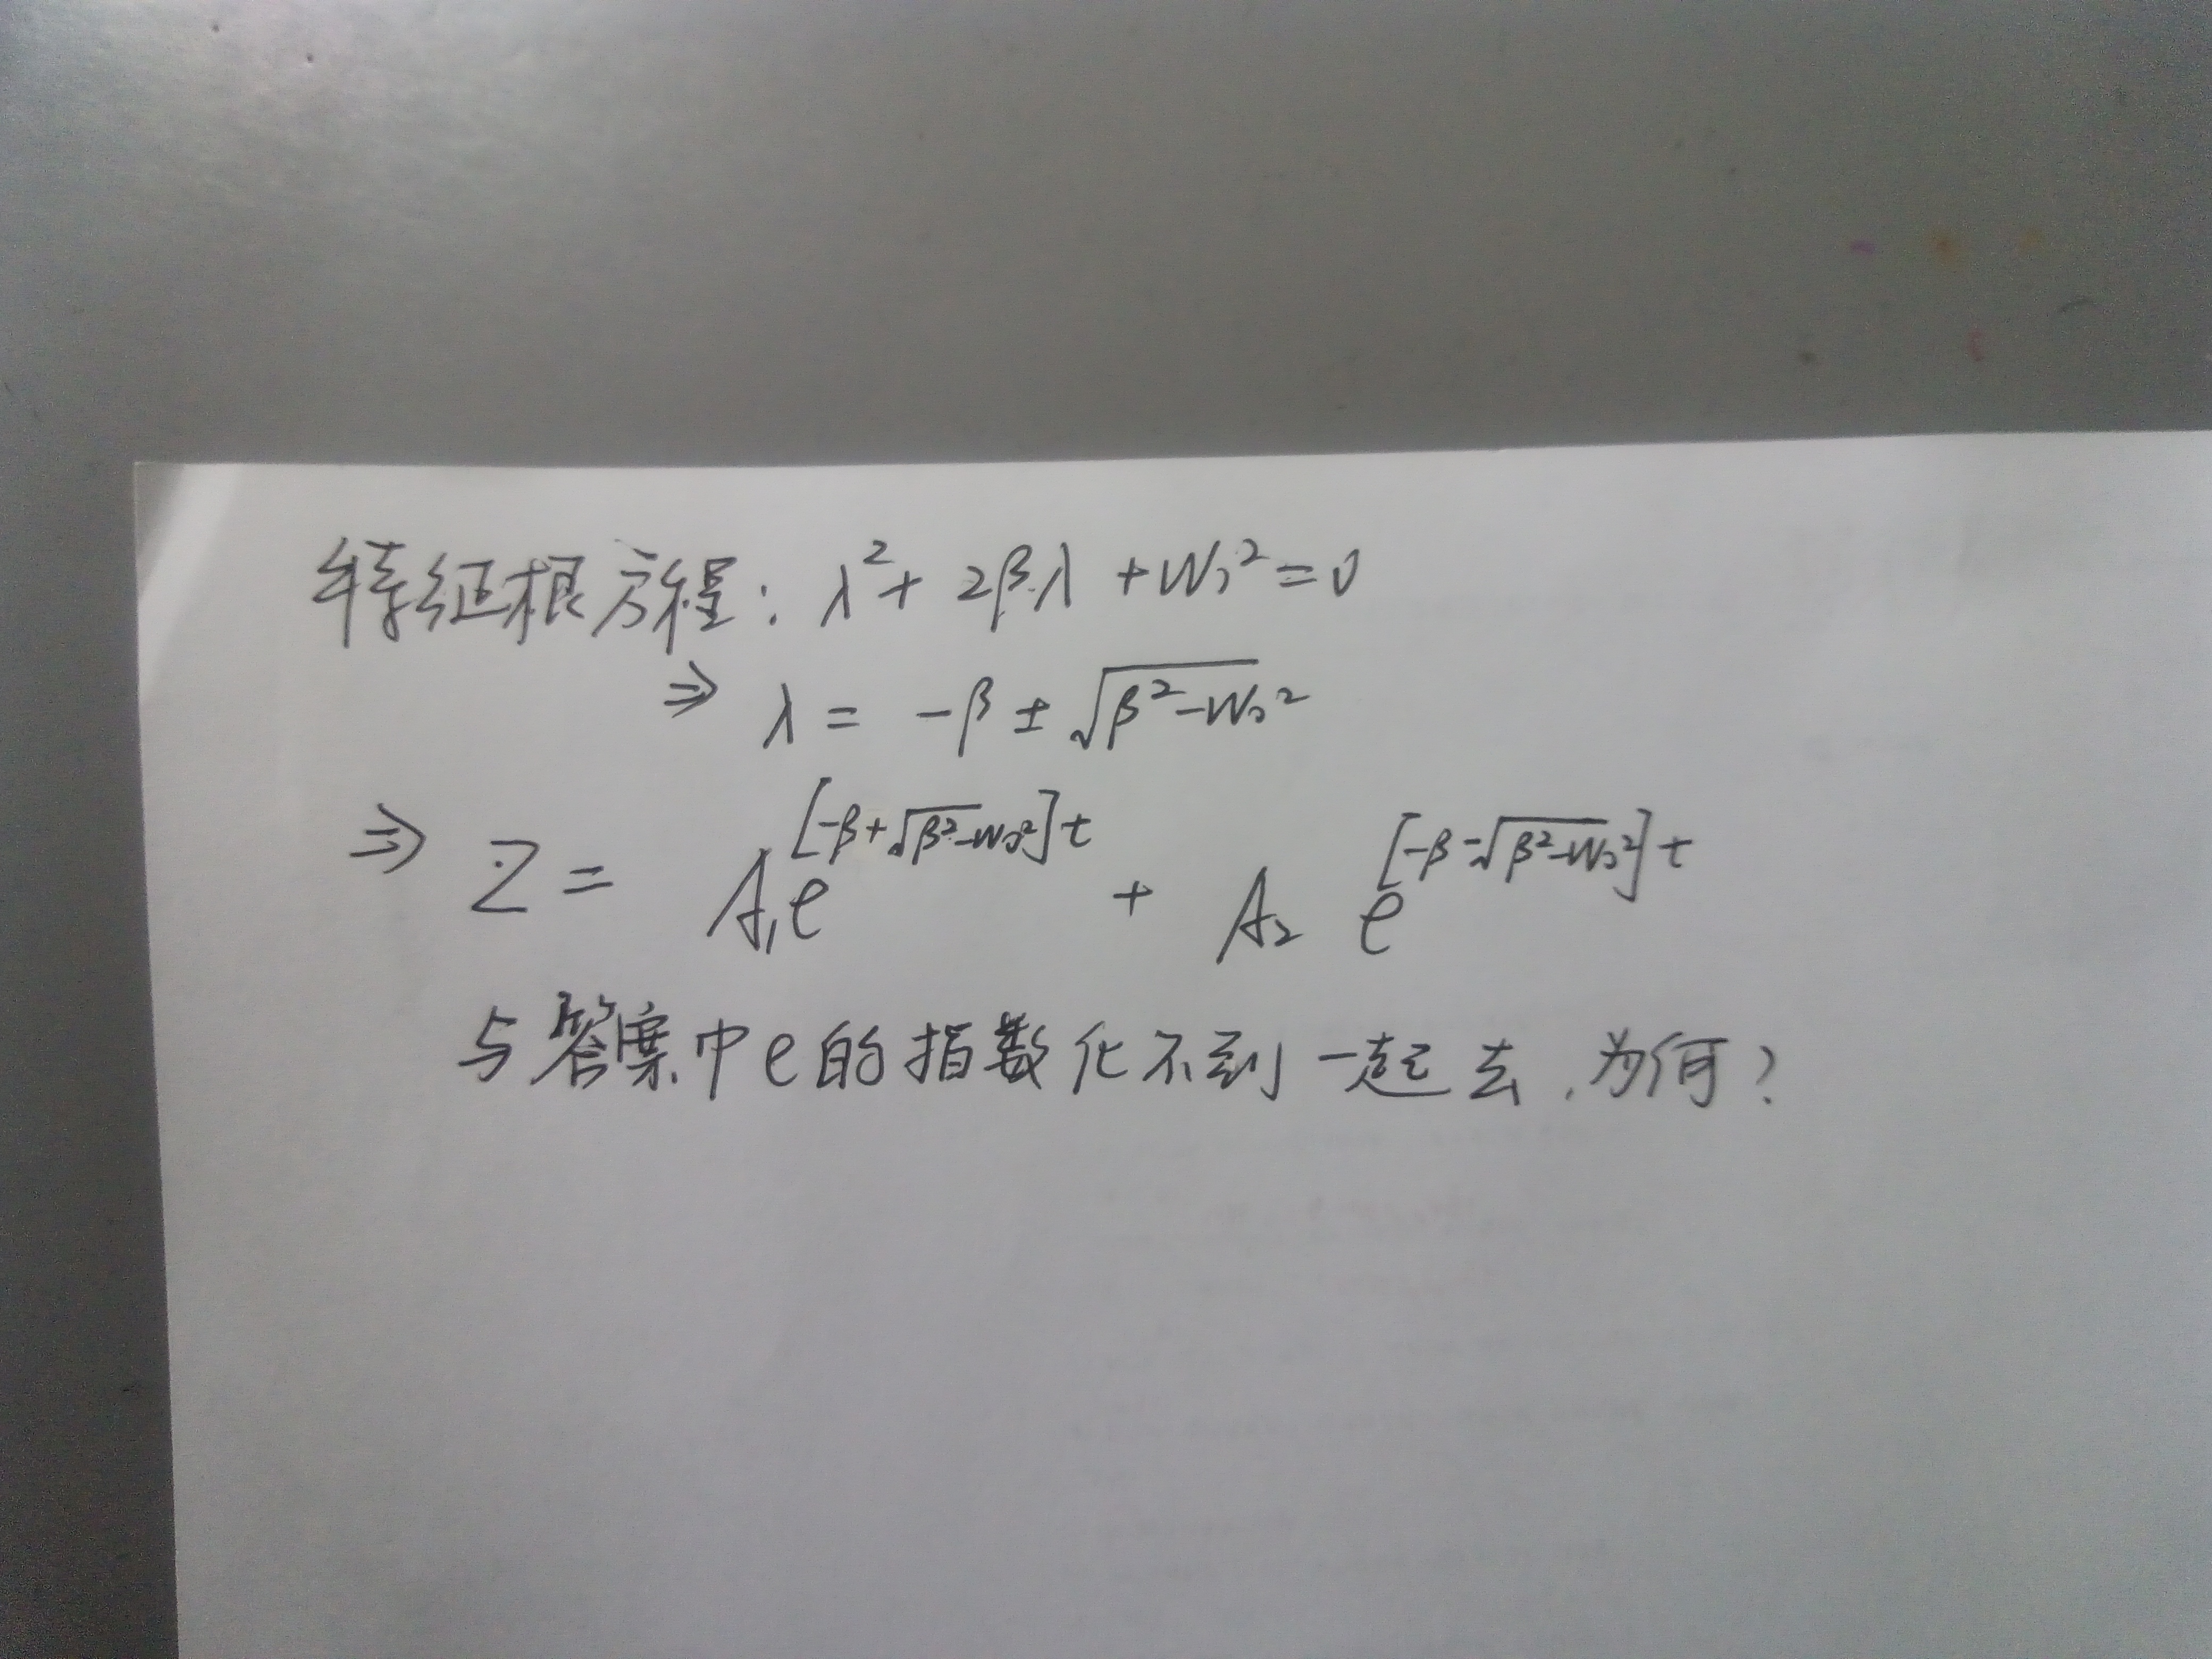 特征根方程: λ² + 2βλ + W₀² = 0
⇒ λ = -β ± √(β²-W₀²)
⇒ Z = A₁e^{[-β+√(β²-W₀²)]t} + A₂ e^{[-β-√(β²-W₀²)]t}
与答案中e的指数化不到一起去,为何?